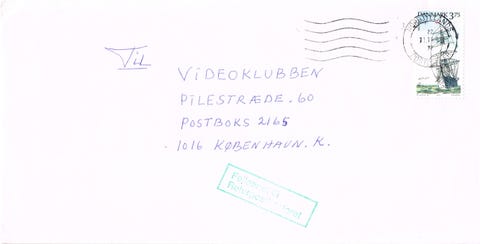 DANMARK 3.75
Til
VIDEOKLUBBEN
PILESTRÆDE. 60
POSTBOKS 2165
1016 KØBENHAVN. K.